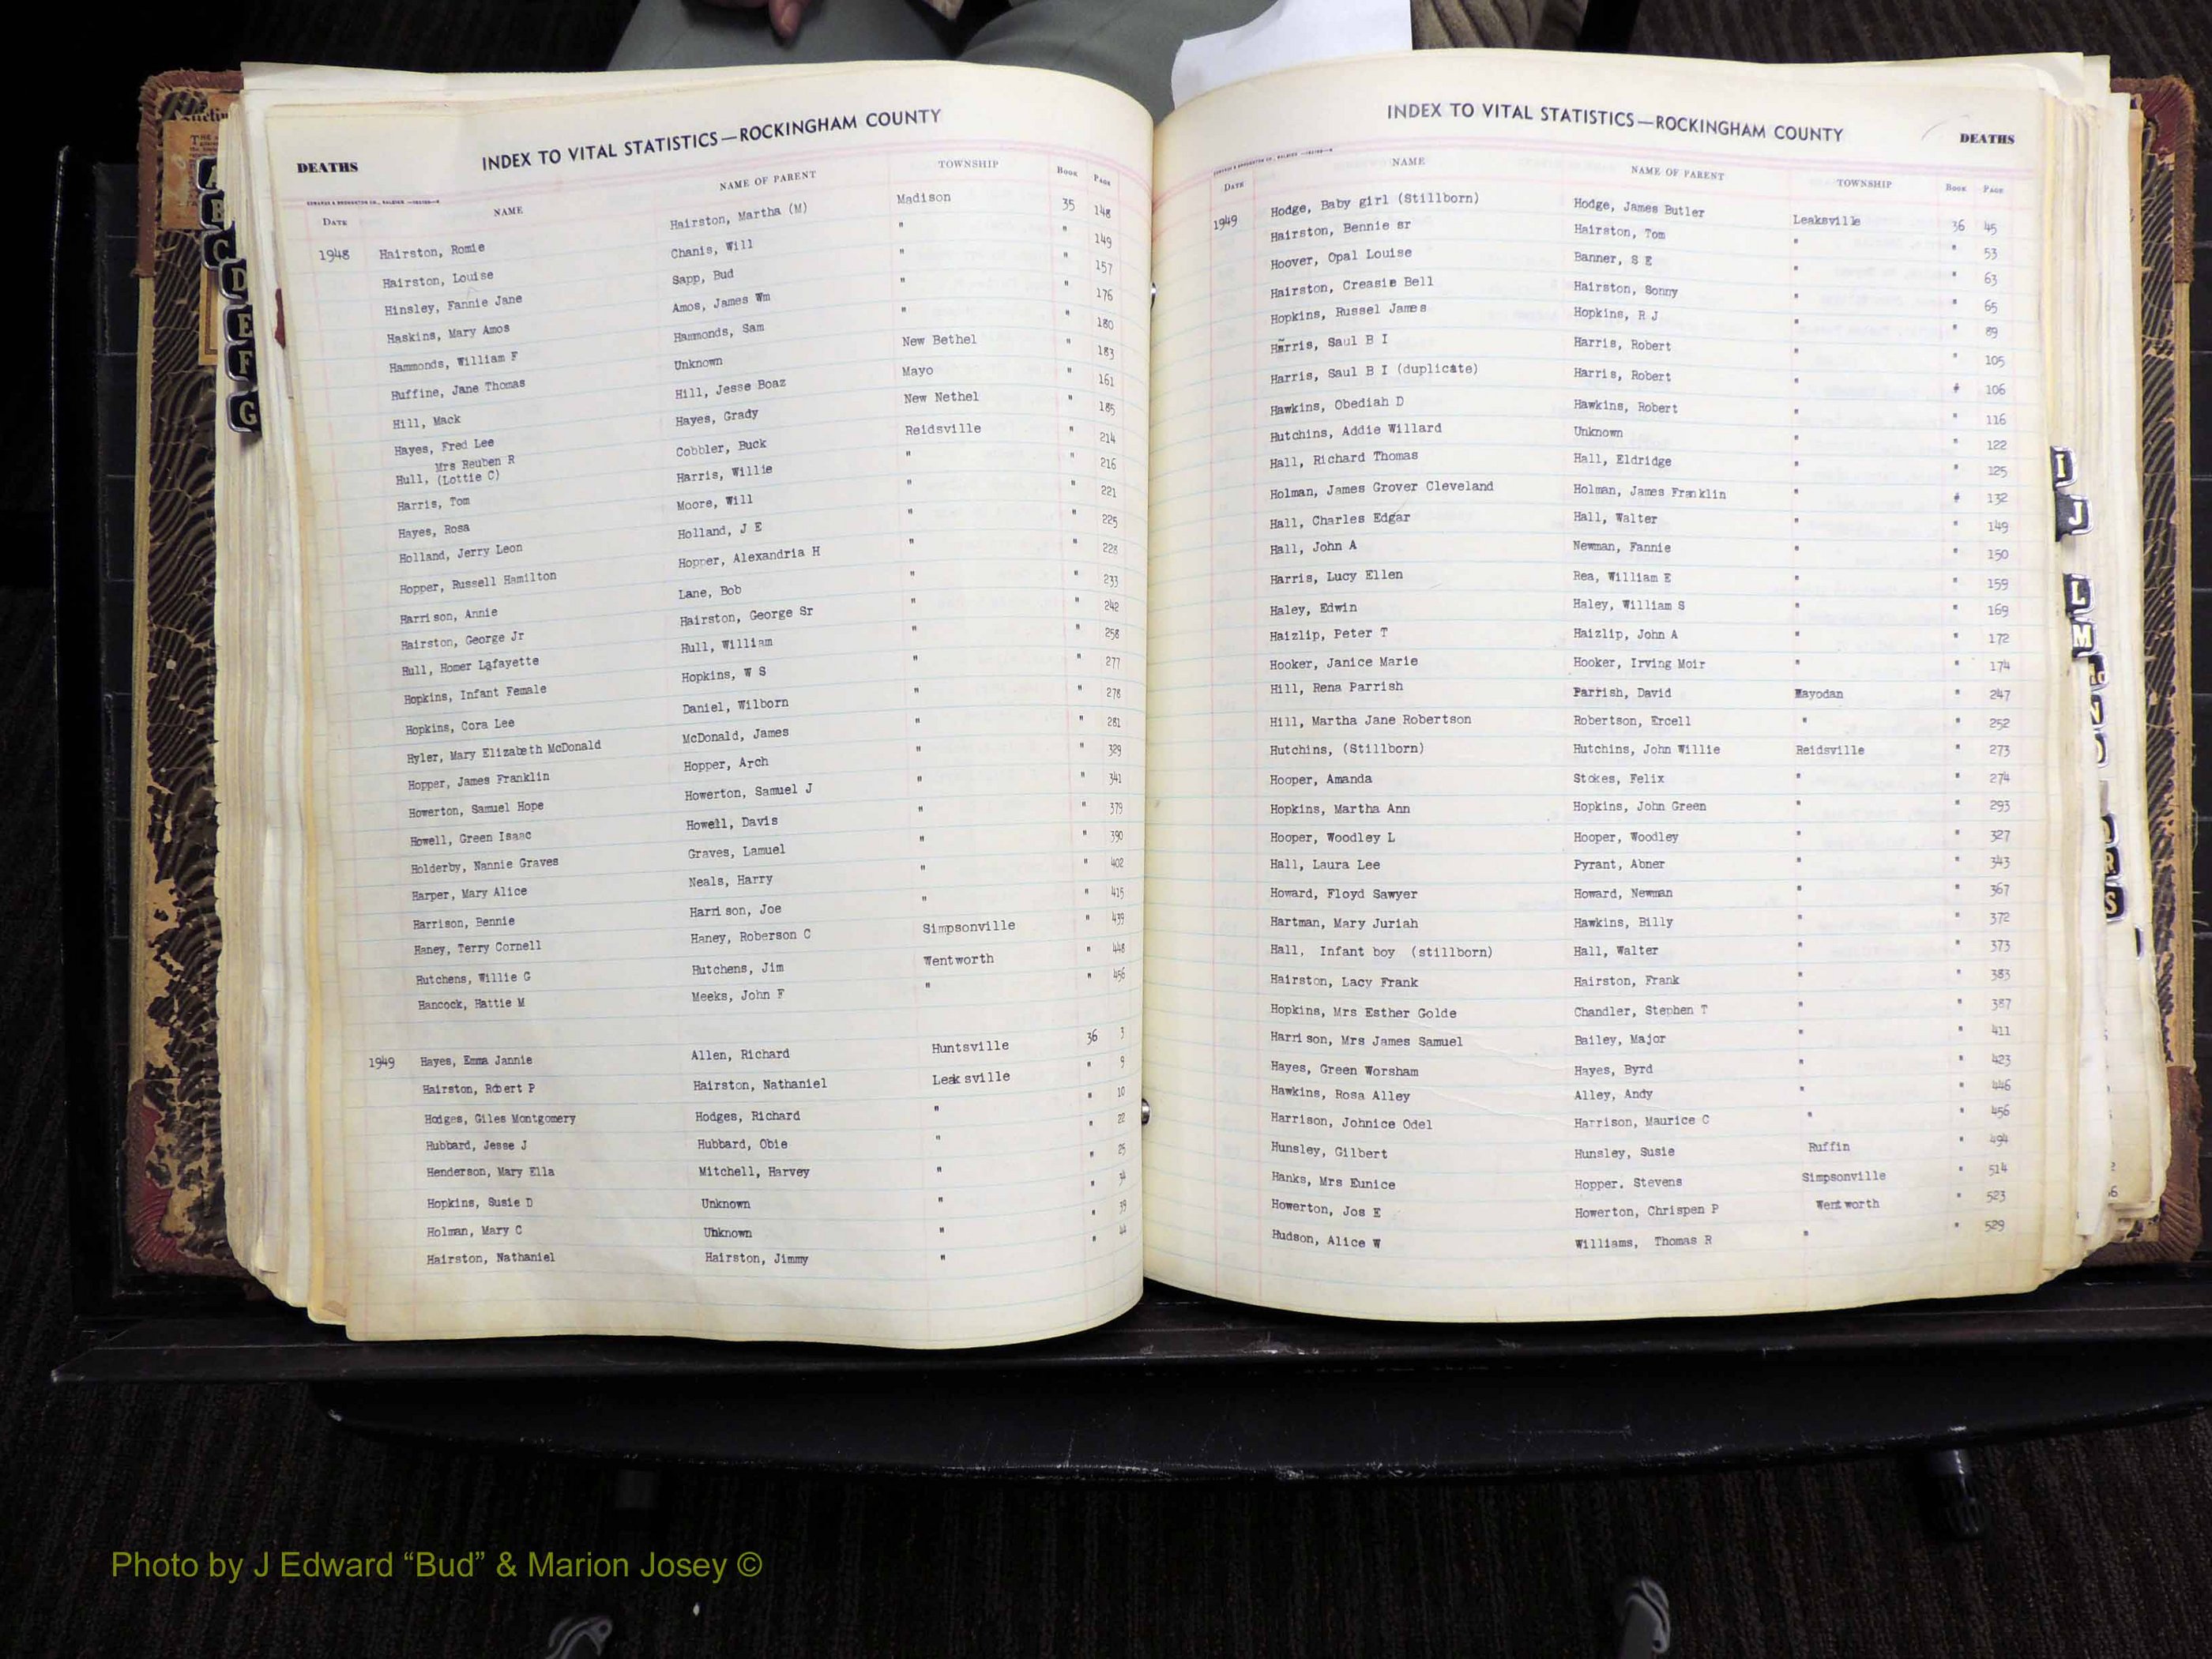 INDEX TO VITAL STATISTICS—ROCKINGHAM COUNTY
DEATHS
DATE NAME NAME OF PARENT TOWNSHIP BOOK PAGE
1948 Hairston, Romie Hairston, Martha (M) Madison 35 148
Hairston, Louise Chanis, Will " " 149
Hinsley, Fannie Jane Sapp, Bud " " 157
Haskins, Mary Amos Amos, James Wm " " 176
Hammonds, William F Hammonds, Sam " " 180
Huffine, Jane Thomas Unknown New Bethel " 183
Hill, Mack Hill, Jesse Boaz Mayo " 161
Hayes, Fred Lee Hayes, Grady New Nethel " 185
Mrs Reuben R
Hull, (Lottie C) Cobbler, Buck Reidsville " 214
Harris, Tom Harris, Willie " " 216
Hayes, Rosa Moore, Will " " 221
Holland, Jerry Leon Holland, J E " " 225
Hopper, Russell Hamilton Hopper, Alexandria H " " 228
Harrison, Annie Lane, Bob " " 233
Hairston, George Jr Hairston, George Sr " " 242
Hull, Homer Lafayette Hull, William " " 258
Hopkins, Infant Female Hopkins, W S " " 277
Hopkins, Cora Lee Daniel, Wilborn " " 278
Hyler, Mary Elizabeth McDonald McDonald, James " " 281
Hopper, James Franklin Hopper, Arch " " 329
Howerton, Samuel Hope Howerton, Samuel J " " 341
Howell, Green Isaac Howell, Davis " " 379
Holderby, Nannie Graves Graves, Lamuel " " 390
Harper, Mary Alice Neals, Harry " " 402
Harrison, Bennie Harrison, Joe " " 415
Haney, Terry Cornell Haney, Roberson C Simpsonville " 439
Hutchens, Willie G Hutchens, Jim Wentworth " 448
Hancock, Hattie M Meeks, John F " " 456
1949 Hayes, Emma Jannie Allen, Richard Huntsville 36 3
Hairston, Robert P Hairston, Nathaniel Leaksville " 9
Hodges, Giles Montgomery Hodges, Richard " " 10
Hubbard, Jesse J Hubbard, Obie " " 22
Henderson, Mary Ella Mitchell, Harvey " " 25
Hopkins, Susie D Unknown " " 34
Holman, Mary C Unknown " " 39
Hairston, Nathaniel Hairston, Jimmy " " 44
INDEX TO VITAL STATISTICS—ROCKINGHAM COUNTY
DEATHS
DATE NAME NAME OF PARENT TOWNSHIP BOOK PAGE
1949 Hodge, Baby girl (Stillborn) Hodge, James Butler Leaksville 36 45
Hairston, Bennie sr Hairston, Tom " " 53
Hoover, Opal Louise Banner, S E " " 63
Hairston, Creasie Bell Hairston, Sonny " " 65
Hopkins, Russel James Hopkins, R J " " 89
Harris, Saul B I Harris, Robert " " 105
Harris, Saul B I (duplicate) Harris, Robert " " 106
Hawkins, Obediah D Hawkins, Robert " " 116
Hutchins, Addie Willard Unknown " " 122
Hall, Richard Thomas Hall, Eldridge " " 125
Holman, James Grover Cleveland Holman, James Franklin " " 132
Hall, Charles Edgar Hall, Walter " " 149
Hall, John A Newman, Fannie " " 150
Harris, Lucy Ellen Rea, William E " " 159
Haley, Edwin Haley, William S " " 169
Haizlip, Peter T Haizlip, John A " " 172
Hooker, Janice Marie Hooker, Irving Moir " " 174
Hill, Rena Parrish Parrish, David Mayodan " 247
Hill, Martha Jane Robertson Robertson, Ercell " " 252
Hutchins, (Stillborn) Hutchins, John Willie Reidsville " 273
Hooper, Amanda Stokes, Felix " " 274
Hopkins, Martha Ann Hopkins, John Green " " 293
Hooper, Woodley L Hooper, Woodley " " 327
Hall, Laura Lee Pyrant, Abner " " 343
Howard, Floyd Sawyer Howard, Newman " " 367
Hartman, Mary Juriah Hawkins, Billy " " 372
Hall, Infant boy (stillborn) Hall, Walter " " 373
Hairston, Lacy Frank Hairston, Frank " " 383
Hopkins, Mrs Esther Golde Chandler, Stephen T " " 387
Harrison, Mrs James Samuel Bailey, Major " " 411
Hayes, Green Worsham Hayes, Byrd " " 423
Hawkins, Rosa Alley Alley, Andy " " 446
Harrison, Johnice Odel Harrison, Maurice C " " 456
Hunsley, Gilbert Hunsley, Susie Ruffin " 494
Hanks, Mrs Eunice Hopper, Stevens Simpsonville " 514
Howerton, Jos E Howerton, Chrispen P Wentworth " 523
Hudson, Alice W Williams, Thomas R " " 529
A
B
C
D
E
F
G
I
J
L
M
N
R
S
Photo by J Edward “Bud” & Marion Josey ©